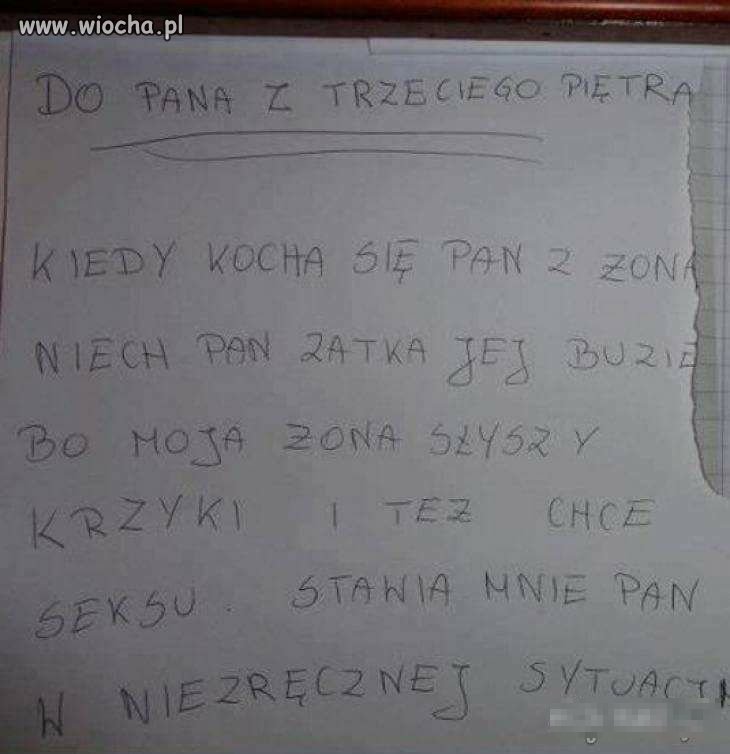 www.wiocha.pl
DO PANA Z TRZECIEGO PIĘTRA
KIEDY KOCHA SIĘ PAN Z ŻONĄ
NIECH PAN ZATKA JEJ BUZIE
BO MOJA ŻONA SŁYSZY
KRZYKI I TEZ CHCE
SEKSU. STAWIA MNIE PAN
W NIEZRĘCZNEJ